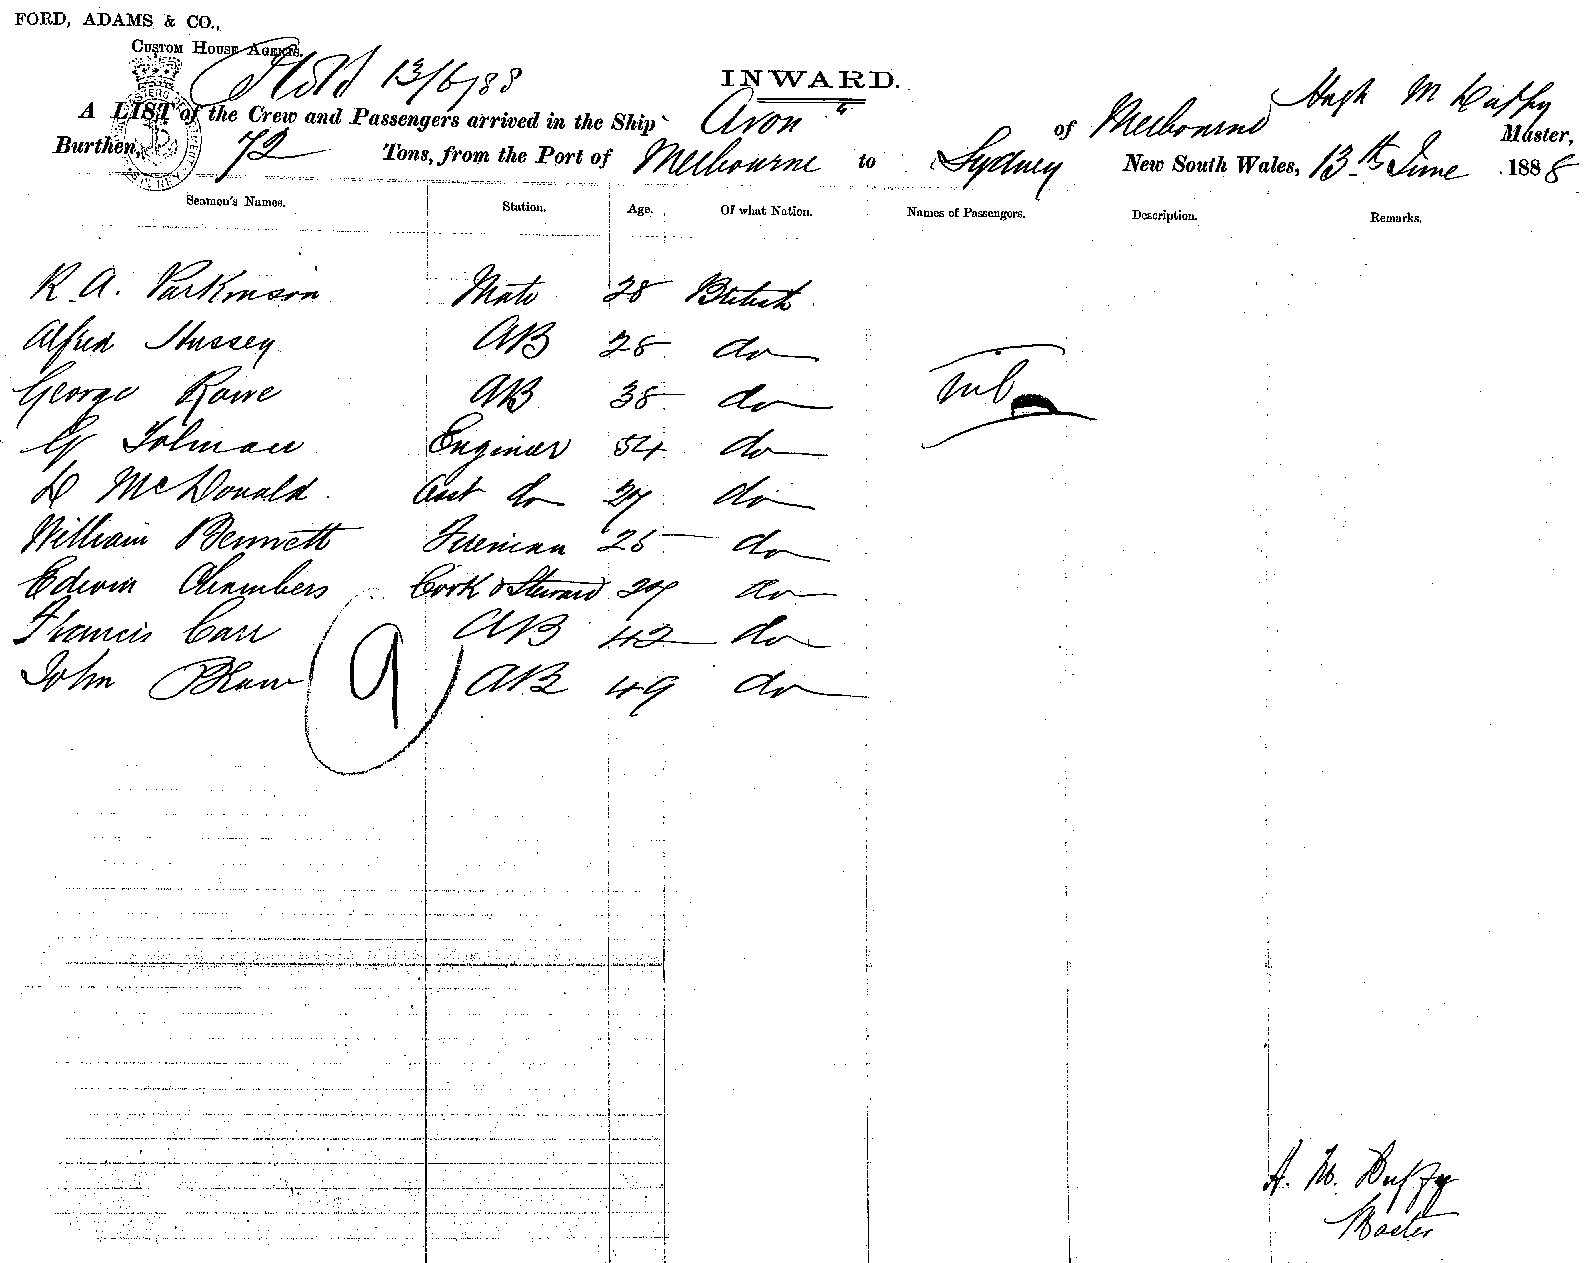 FORD, ADAMS & CO.,
CUSTOM HOUSE AGENTS.
13/6/88
INWARD.
A LIST of the Crew and Passengers arrived in the Ship "Avon" of Melbourne Hugh M Duffy Master,
Burthen, 72 Tons, from the Port of Melbourne to Sydney New South Wales, 13th June 1888
Seamen's Names. Station. Age. Of what Nation. Names of Passengers. Description. Remarks.
R. A. Parkinson Mate 28 British
Alfred Hussey AB 28 do
George Rowe AB 38 do
G Tolman Engineer 54 do
D McDonald Asst do 27 do
William Bennett Fireman 25 do
Edwin Chambers Cook & Steward 27 do
Francis Carr AB 42 do
John AB 49 do
9
Nil
H. M. Duffy
Master